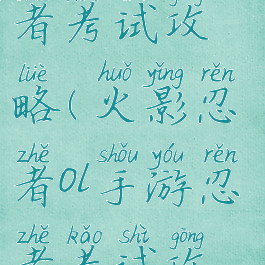 者考试攻
lüè huǒ yǐng rěn
略(火影忍
zhě shǒu yóu rěn
者Ol手游忍
zhě kǎo shì gōng
者考试攻